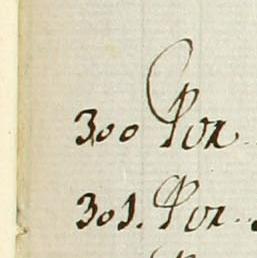 300 Por..
301. Por...